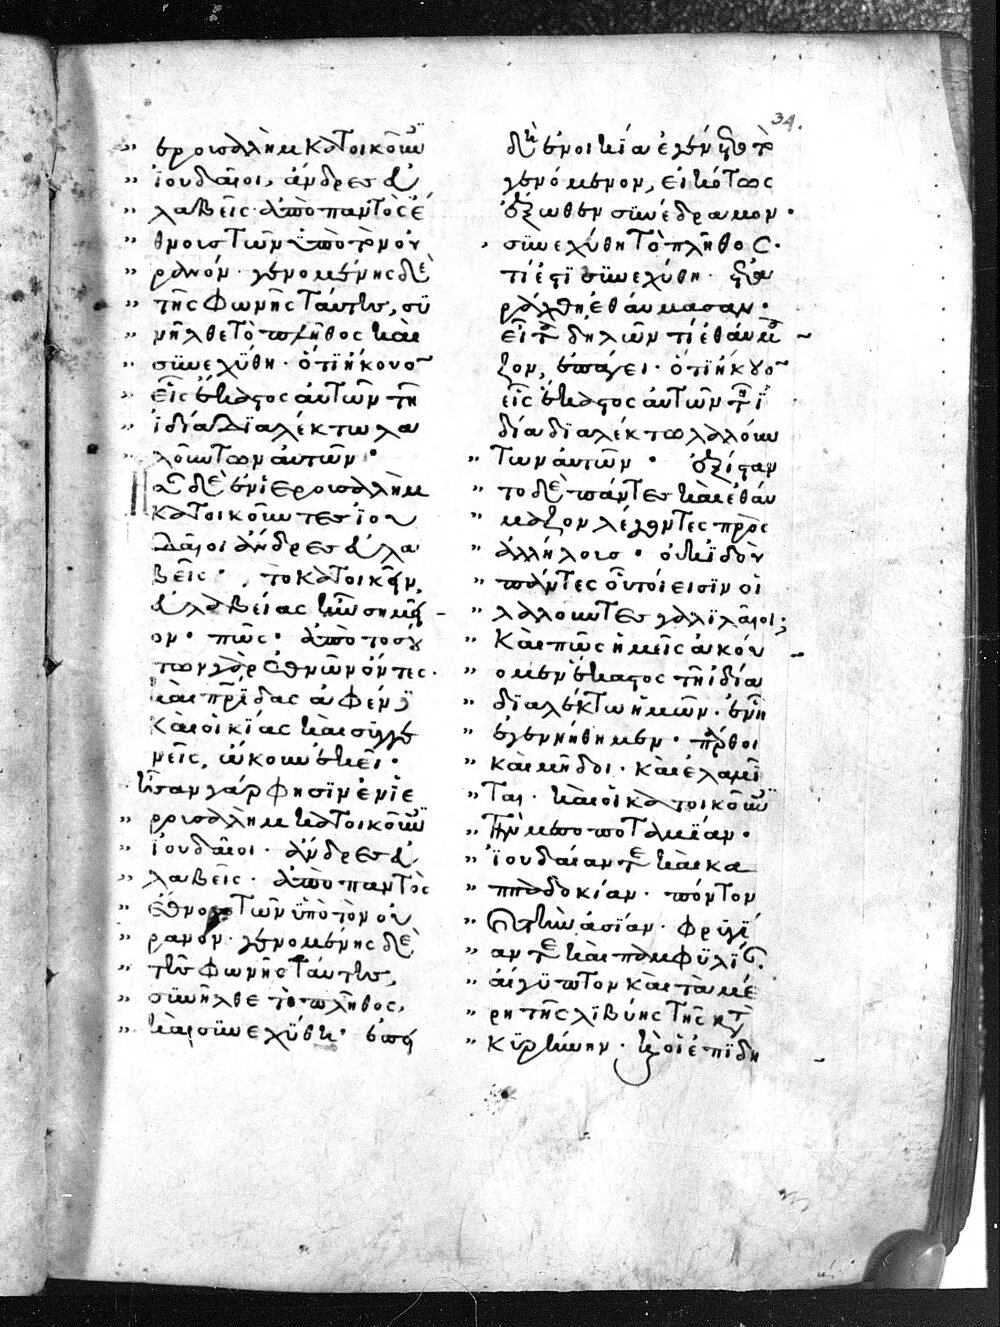 34.
ερουσαλὴμ κατοικοῦν
ἰουδαῖοι, ἄνδρες εὐ
λαβεῖς ἀπὸ παντὸς ἔ
θνους τῶν ὑπὸ τὸν οὐ
ρανόν· γενομένης δὲ
τῆς φωνῆς ταύτης, συ
νῆλθε τὸ πλῆθος καὶ
συνεχύθη· ὅτι ἤκουο
εἷς ἕκαστος αὐτῶν τῆ
ἰδία διαλέκτω λα
λούντων αὐτῶν·
οἱ δὲ ἐν ἱερουσαλὴμ
κατοικοῦντες ἰου
δαῖοι ἄνδρες εὐλα
βεῖς· τὸ κατοικεῖν,
εὐλαβείας ἦν σημεῖ
ον· πῶς· ἀπὸ τοσού
των γὰρ ἐθνῶν ὄντες·
καὶ πατρίδας ἀφέντες
καὶ οἰκίας καὶ συγγε
νεῖς, ὤκουν ἐκεῖ·
ἦσαν γάρ φησιν ἐν ἱε
ρουσαλὴμ κατοικοῦν
ἰουδαῖοι· ἄνδρες εὐ
λαβεῖς· ἀπὸ παντὸς
ἔθνους τῶν ὑπὸ τὸν οὐ
ρανόν· γενομένης δὲ
τῆς φωνῆς ταύτης,
συνῆλθε τὸ πλῆθος,
καὶ συνεχύθη· ἐπει
δὴ ἐν οἰκία ἐγεν
γενόμενον, εἰκότως
ἔξωθεν συνέδραμον·
συνεχύθη τὸ πλῆθος·
τί ἐστι συνεχύθη·
ράχθη, ἐθαύμασαν·
εἶτα δηλῶν τί ἐθαύμα
ζον, ἐπάγει· ὅτι ἤκουο
εἷς ἕκαστος αὐτῶν τῆ ἰ
δία διαλέκτω λαλούν
των αὐτῶν· ἐξίσταν
το δὲ πάντες καὶ ἐθαύ
μαζον λέγοντες πρὸς
ἀλλήλους· οὐκ ἰδοὺ
πάντες οὗτοί εἰσιν οἱ
λαλοῦντες γαλιλαῖοι;
καὶ πῶς ἡμεῖς ἀκού
ομεν ἕκαστος τῆ ἰδία
διαλέκτω ἡμῶν· ἐν ἧ
ἐγεννήθημεν· πάρθοι
καὶ μῆδοι· καὶ ἐλαμῖ
ται· καὶ οἱ κατοικοῦν
τὴν μεσοποταμίαν·
ἰουδαίαν τε καὶ κα
ππαδοκίαν· πόντον
καὶ τὴν ἀσίαν· φρυγί
αν τε καὶ παμφυλίαν·
αἴγυπτον καὶ τὰ μέ
ρη τῆς λιβύης τῆς κατὰ
κυρήνην· καὶ οἱ ἐπιδη